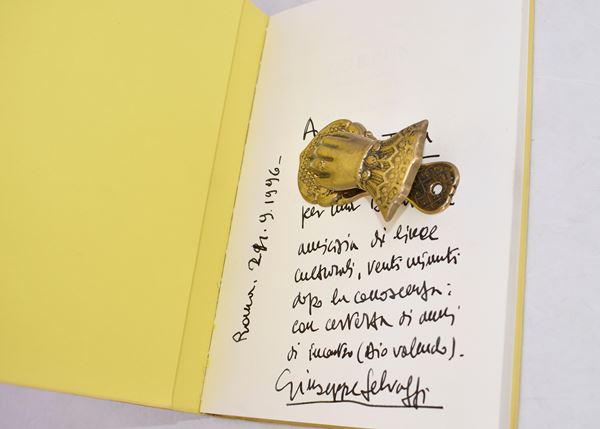 A
per una
amicizia di linee
culturali, venti minuti
dopo la conoscenza:
con certezza di anni
di incontro (Dio volendo).
Giuseppe Selvaggi
Roma. 29.9.1996-